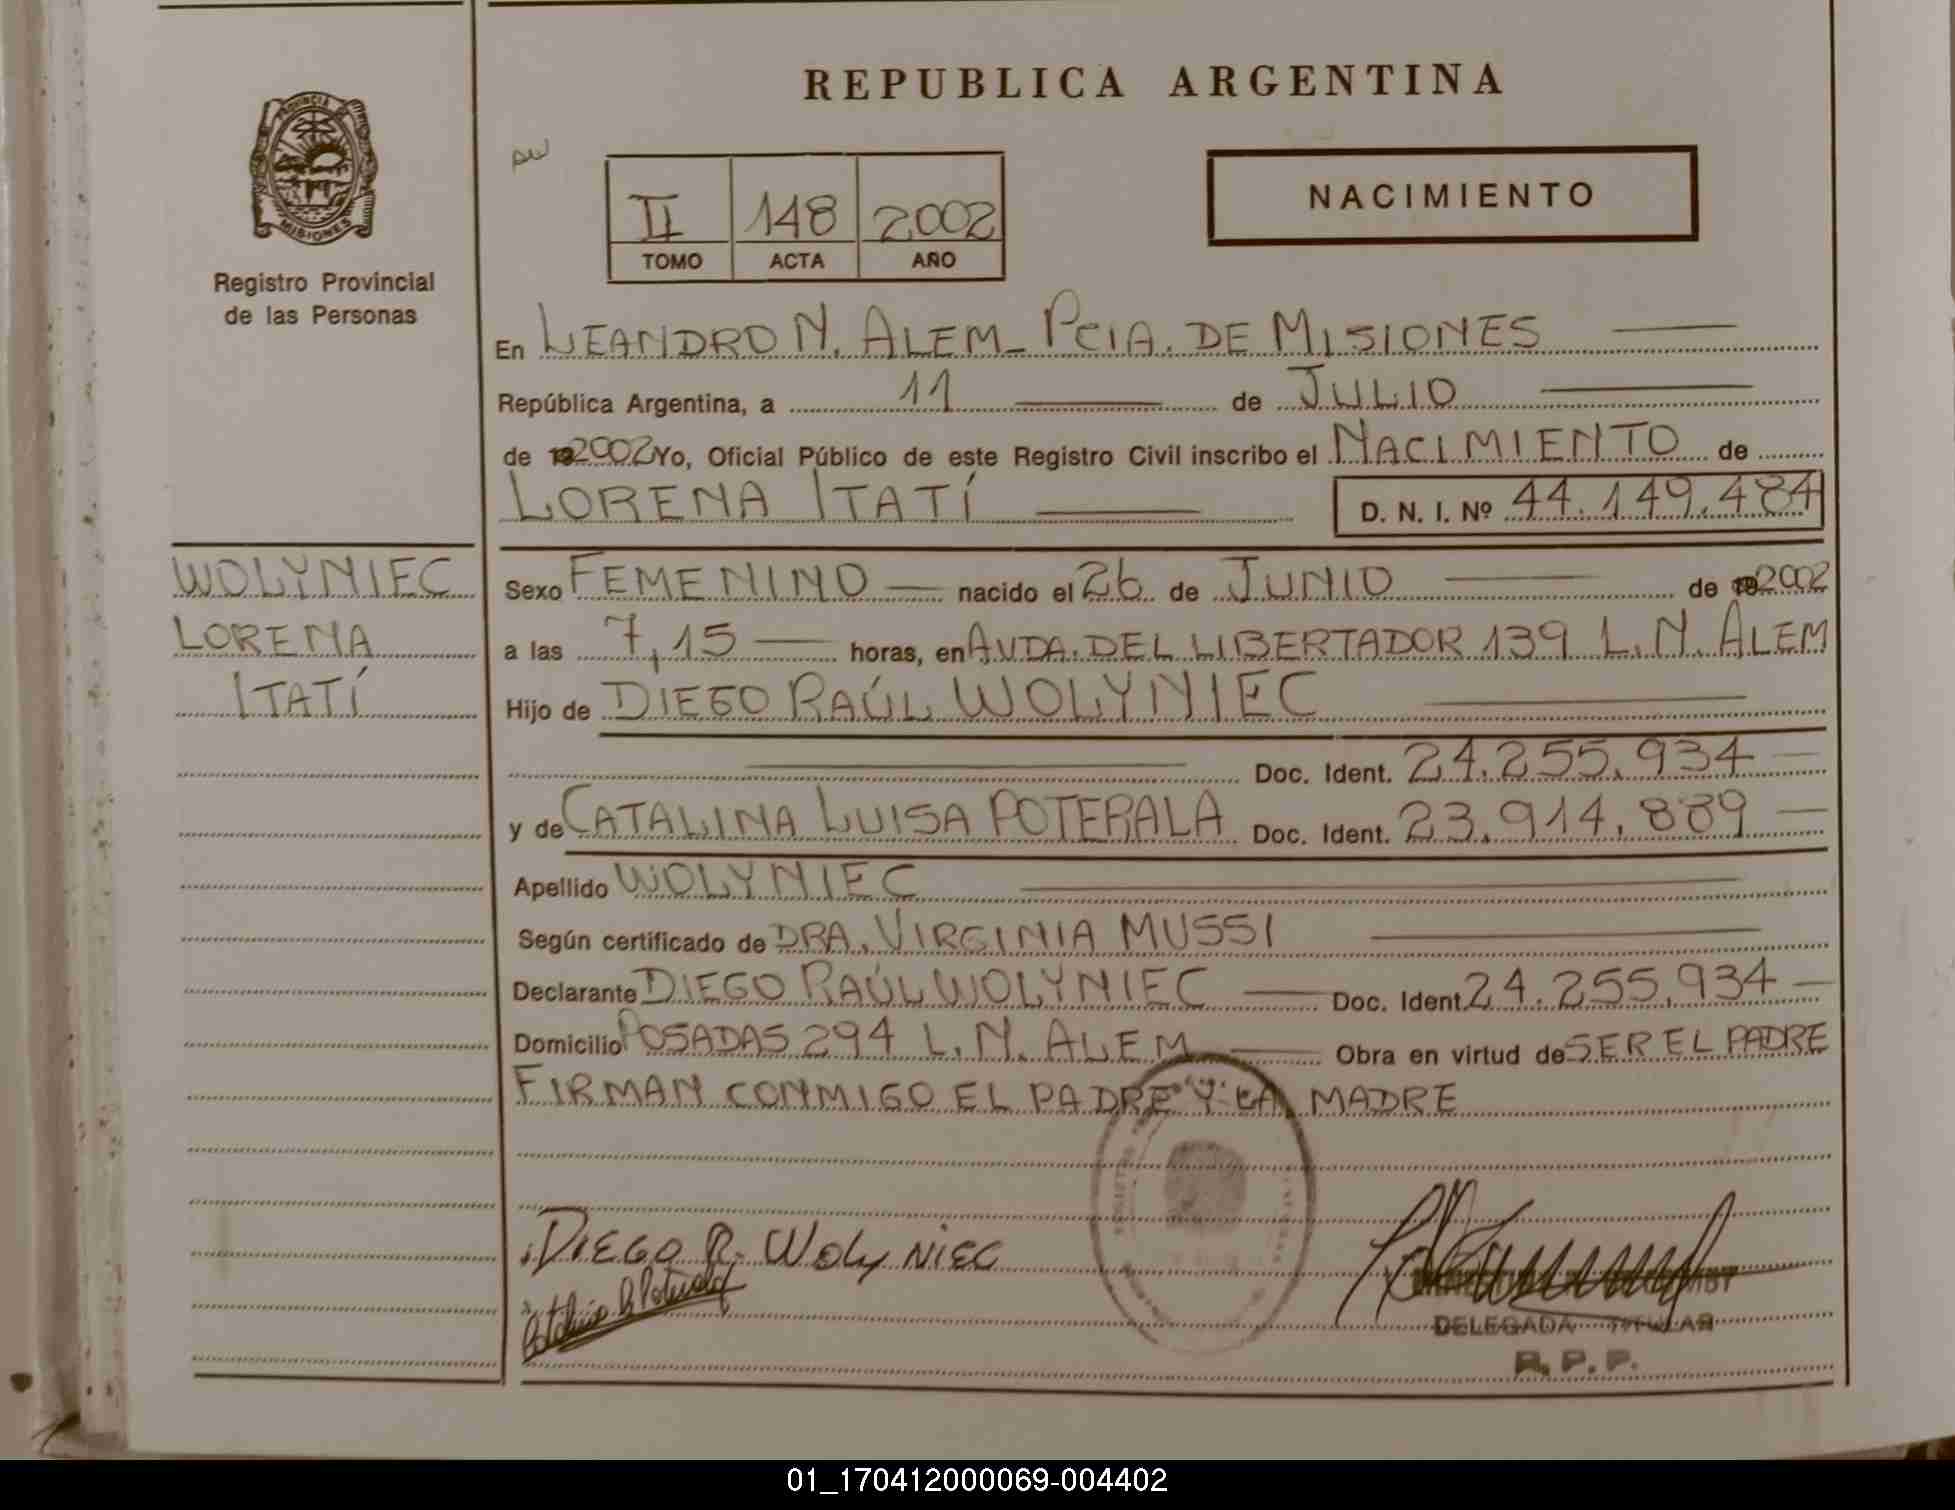 REPUBLICA ARGENTINA
PROVINCIA DE
MISIONES
Registro Provincial
de las Personas
II 148 2002
TOMO ACTA AÑO
NACIMIENTO
En LEANDRO N. ALEM - PCIA. DE MISIONES
República Argentina, a 11 de JULIO
de 192002 Yo, Oficial Público de este Registro Civil inscribo el NACIMIENTO de
LORENA ITATÍ D. N. I. Nº 44.149.484
WOLYNIEC
LORENA
ITATÍ
Sexo FEMENINO nacido el 26 de JUNIO de 192002
a las 7,15 horas, en AVDA. DEL LIBERTADOR 139 L. N. ALEM
Hijo de DIEGO RAÚL WOLYNIEC
Doc. Ident. 24.255.934
y de CATALINA LUISA POTERALA Doc. Ident. 23.914.889
Apellido WOLYNIEC
Según certificado de DRA. VIRGINIA MUSSI
Declarante DIEGO RAÚL WOLYNIEC Doc. Ident. 24.255.934
Domicilio POSADAS 294 L. N. ALEM Obra en virtud de SER EL PADRE
FIRMAN CONMIGO EL PADRE Y LA MADRE
DIEGO R. WOLYNIEC
DELEGADA TITULAR
R. P. P.
01_170412000069-004402